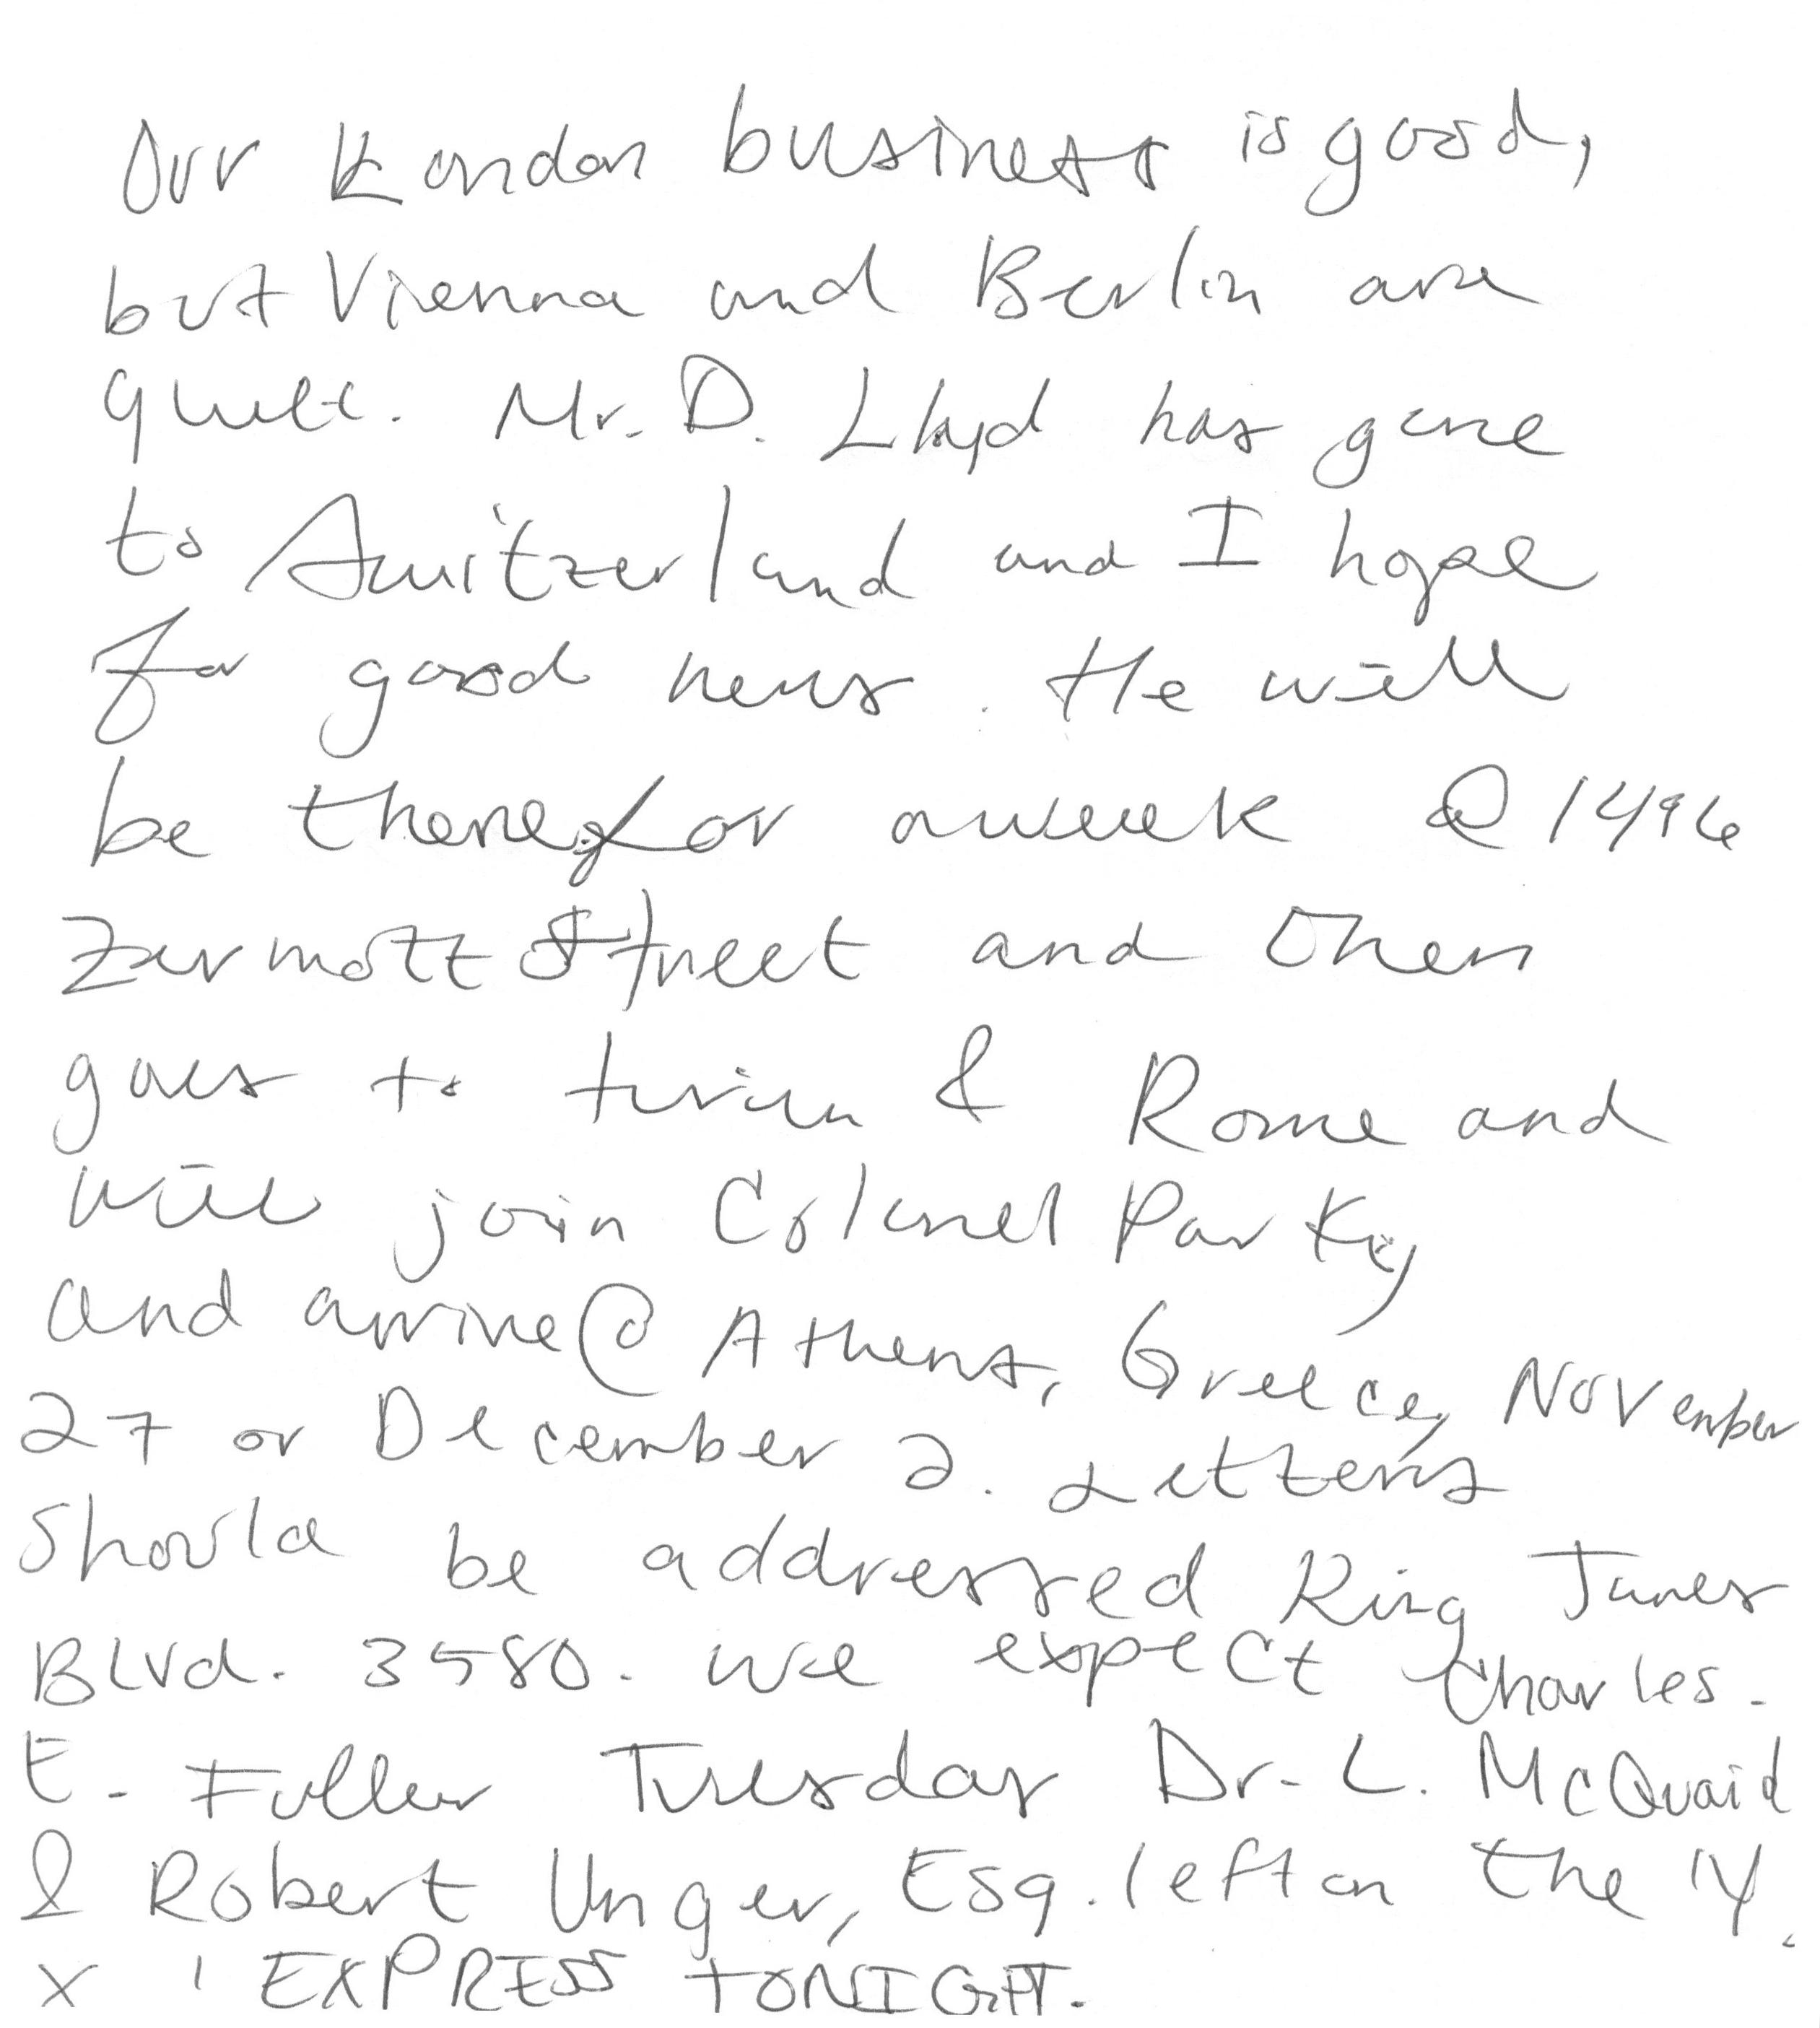 Our London business is good,
but Vienna and Berlin are
quiet. Mr. D. Lloyd has gone
to Switzerland and I hope
for good news. He will
be there for a week @ 1496
Zermott Street and then
goes to turin & Rome and
will join Colonel Parky
and arrive @ Athens, Greece, November
27 or December 2. Letters
should be addressed King James
Blvd. 3580. We expect Charles.
E. Fuller Tuesday Dr. L. McQuaid
& Robert Unger, Esq. left on the 'Y.
X' EXPRESS TONIGHT.